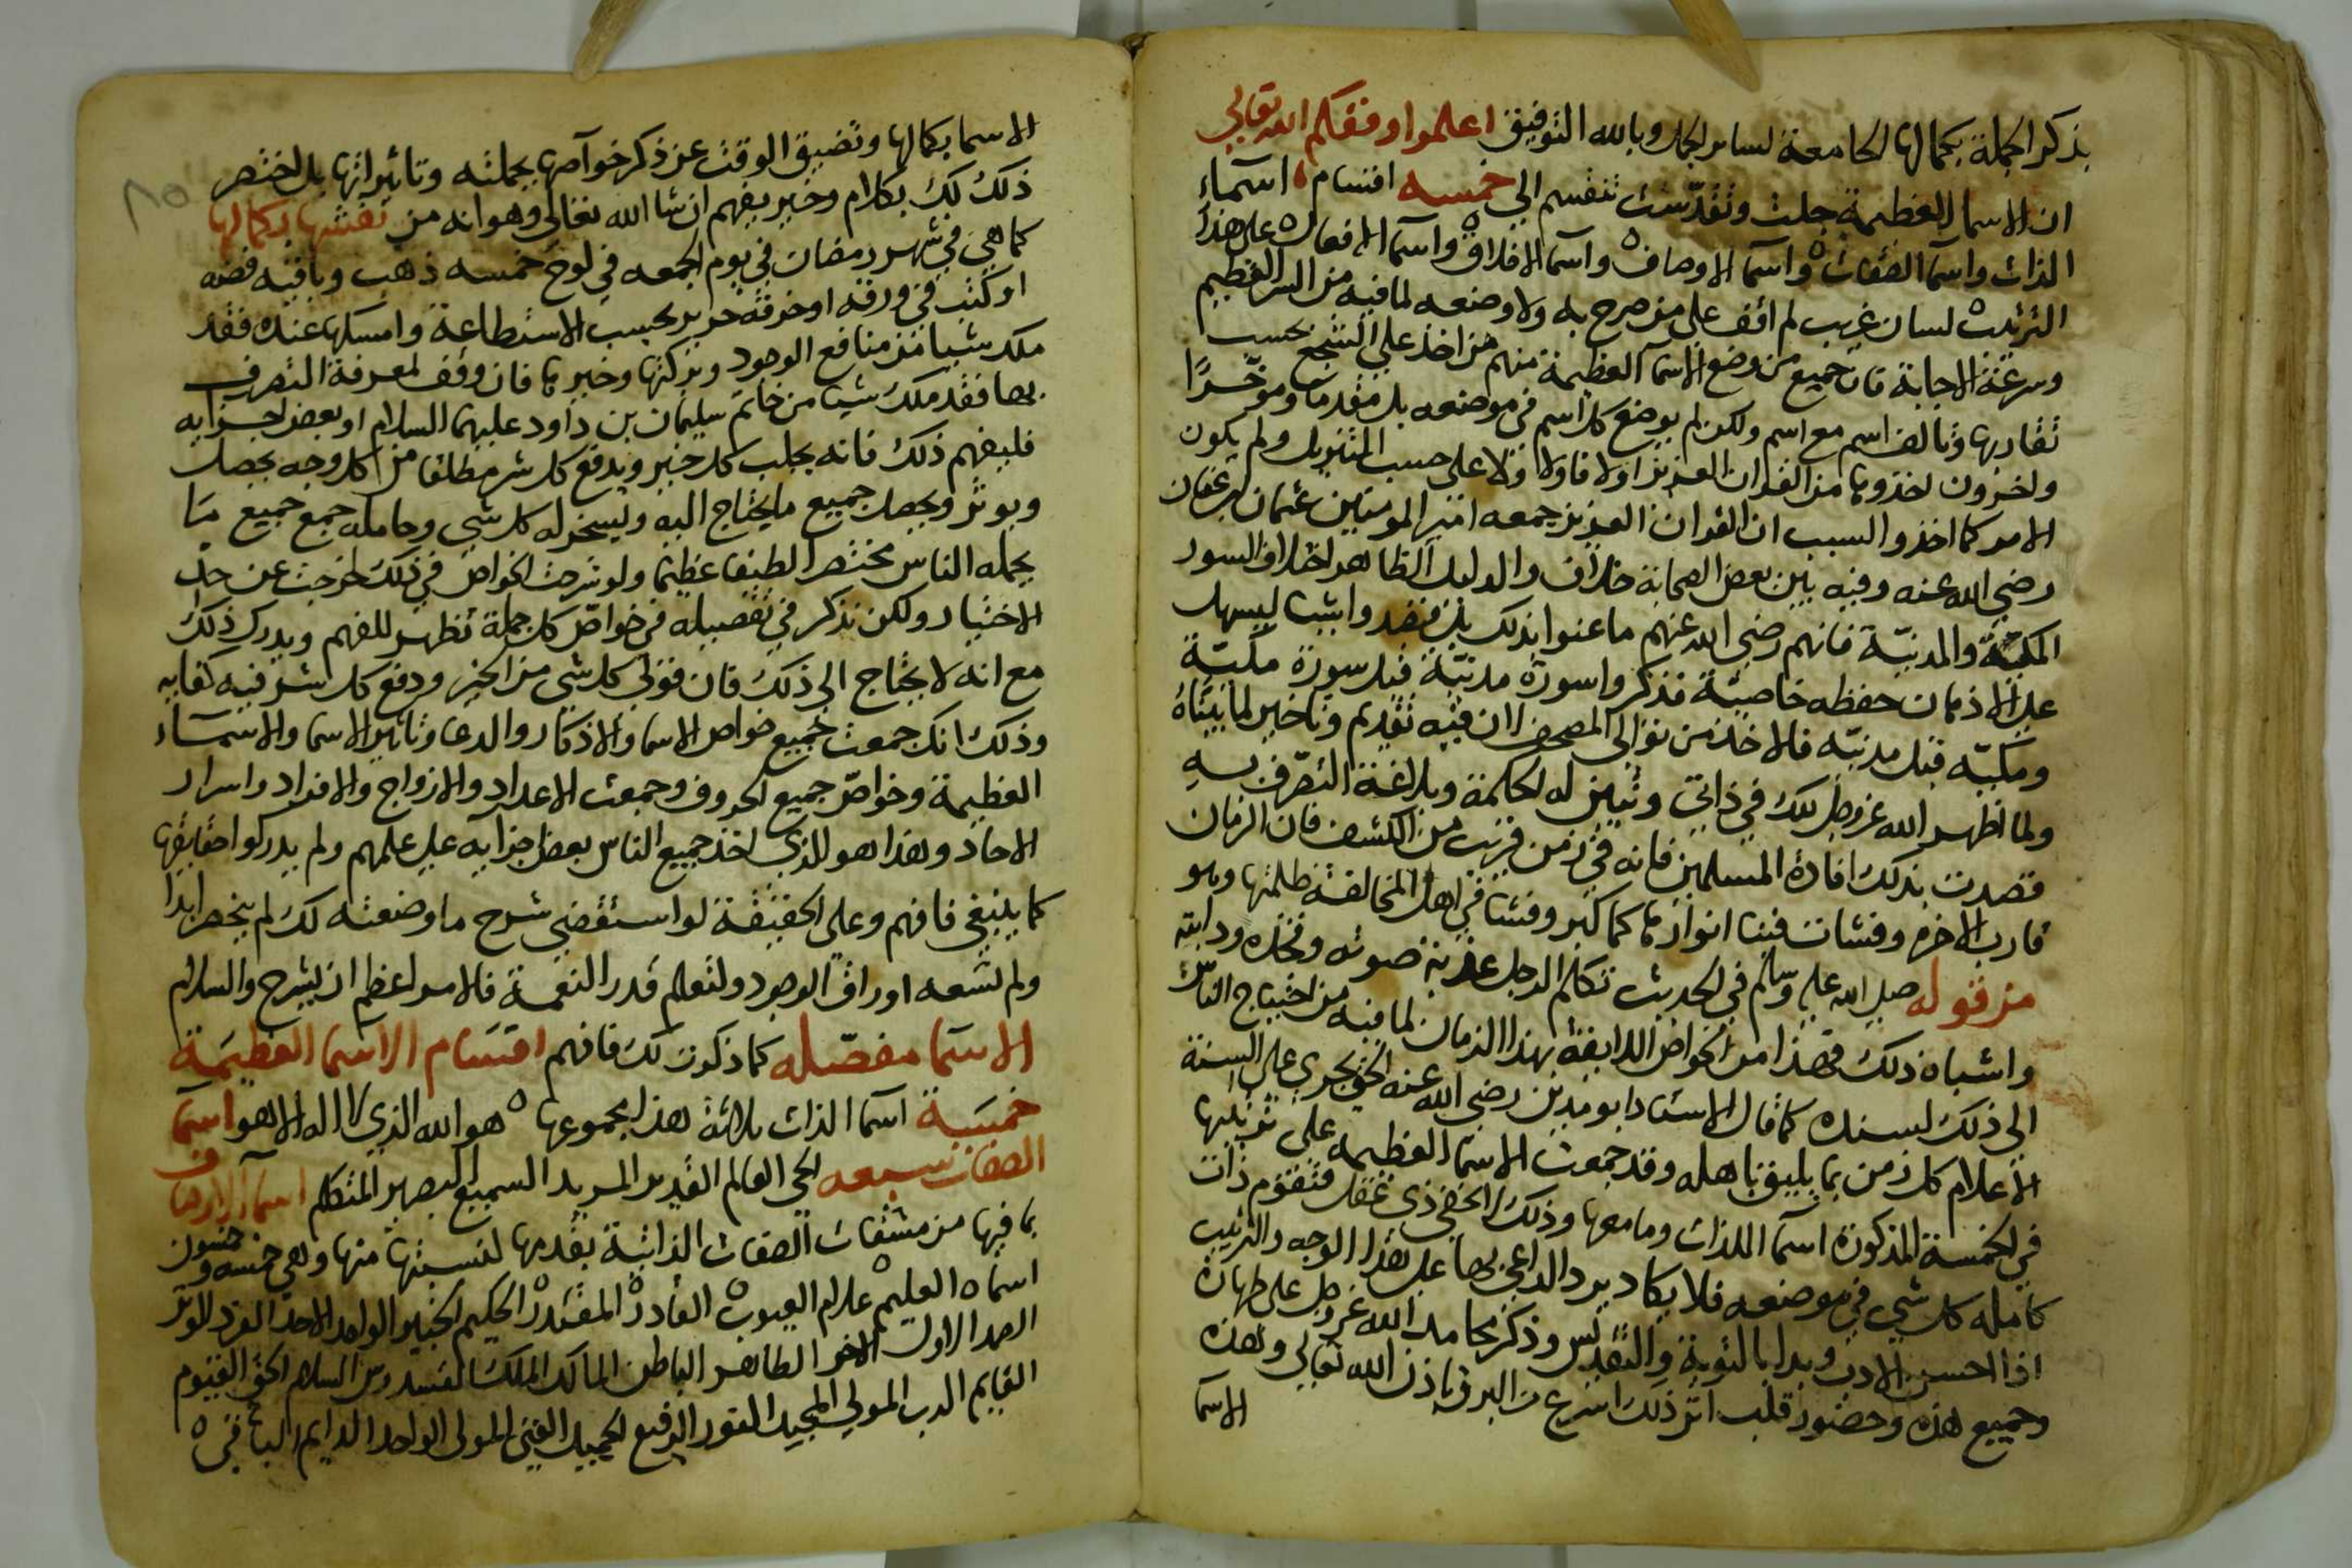 بذكر الجملة بكمالها الجامعة لساير الجمل وبالله التوفيق اعلموا وفقكم الله تعالى
ان الاسما العظيمة جلت وتقدّست تنقسم الى خمسه اقسام اسماء
الذات واسما الصفات واسما الاوصاف واسما الاخلاق واسما الافعال على هذا
الترتيب لسان غريب لم اقف على من صرح به ولا وضعه لما فيه من السر العظيم
وسرعة الاجابة فان جميع من وضع الاسما العظيمة منهم من اخذ على السجع بحسب
تقاربها وتالف اسم مع اسم ولكن لم يوضع كل اسم فى موضعه بل مقدما وموخّرًا
واخرون اخذوها من القران العزيز اولا فاولا على حسب التنزيل ولم يكون
الامر كما اخذوا السبب ان القران العزيز جمعه امير المومنين عثمان بن عفان
رضي الله عنه وفيه بين بعض الصحابة خلاف والدليل الظاهر اختلاف السور
المكيّة والمدنيّة فانهم رضي الله عنهم ما عنوا بذلك واثبت ليسهل
على الاذهان حفظه خاصيّة فذكروا سورة مدنيّة قبل سورة مكيّة
ومكيّه قبل مدنيّه فالاخذ من توالى المصحف ان فيه تقديم وتاخير لما بيّناه
ولما اظهر الله عزوجل لك في ذاتي وتبين له الحكمة وبلاغة التصرّف به
قصدت بذلك افادة المسلمين فانه في زمن قريب من الكشف فان الزمان
قارب الاخر وفشات فينا انوارها كما كبر وفشا في اهل المخالفة ظلمتها وهو
من قوله صلى الله عليه وسلم في الحديث تكلم الرجل عذبة صوته وفخذه ودابته
واشباه ذلك فهذا من الخواص اللايقة بهذا الزمان لما فيه من احتياج الناس
الى ذلك لسنده كما قال الاستاد ابو مدين رضي الله عنه الحق يجري على السنة
الاعلام كل زمن بما يليق باهله وقد جمعت الاسما العظيمه على ترتيلها
في الخمسة المذكورة اسما الذات وما معها وذلك الخفى ذى غفل فتقوم ذات
كامله كل شي في موضعه فلا يكاد يرد الداعي بها على هذا الوجه والترتيب
اذا احسن الادب وبدا بالتوبة والتقديس وذكر محامد الله عزوجل على طهارة
وجميع هذه وحضور قلب اثر ذلك اسرع من البرق باذن الله تعالى وهذه
الاسما
الاسما بكمالها وتضيق الوقت عن ذكر خواصها بجملته وتاثيراتها بل نختصر
ذلك لك بكلام وخير يفهم ان شا الله تعالى وهو انه من نقشها بكمالها
كما هي في شهر رمضان في يوم الجمعه في لوح خمسه ذهب وباقيه فضه
او كتب في ورقه او خرقة حرير بحسب الاستطاعة وامسكها عنده فقد
ملك شيا من منافع الوجود وبركتها وخيرها فان وقف لمعرفة التصرف
بها فقد ملك شيا من خاتم سليمان بن داود عليهما السلام او بعض اجزايه
فليفهم ذلك فانه يجلب كل خير ويدفع كل شر مطلقا من كل وجه يحصل
ويوثر ويحصل جميع ما يحتاج اليه ويسخر له كل شي وحامله جمع جميع ما
يحمله الناس مختصرا لطيفا عظيما ولو شرحت الخواص في ذلك لخرجت عن حدّ
الاختيار ولكن نذكر في تفصيله في خواصّ كل جملة تظهر للفهم ويدرك ذلك
مع انه لا يحتاج الى ذلك فان قولي كل شي من الخير ودفع كل شر فيه كفايه
وذلك انك جمعت جميع خواص الاسما والاذكار والدعا وتاثير الاسما والاسماء
العظيمة وخواصّ جميع الحروف وجمعت الاعداد والازواج والافراد واسرار
الاحاد وهذا هو الذي اخذ جميع الناس بعض اجزايه على علمهم ولم يدركوا حقايقها
كما ينبغي فافهم وعلى الحقيقة لو استقضي شرح ما وضعته لك لم ينحصر ابدا
ولم تسعه اوراق الوجود ولتعلم قدر النعمة فالامر اعظم ان يشرح والسلام
الاسما مفصّله كما ذكرت لك فافهم اقسام الاسما العظيمة
خمسة اسما الذات ثلاثة هذا مجموعها هو الله الذي لا اله الا هو اسما
الصفات سبعه الحي العالم القدير المريد السميع البصير المتكلم اسما الاوصاف
بما فيها من مشتقات الصفات الذاتية بقدمها لنسبتها منها وهي خمسه وخمسون
اسما العليم علام الغيوب القادر المقتدر الحكيم الخبير الواحد الاحد الفرد الوتر
الصمد الاول الاخر الظاهر الباطن المالك الملك القدوس السلام الحق القيوم
القايم الرب المولي المجيد النور الرفيع الحميد الغني المولى الواحد الدايم الباقي